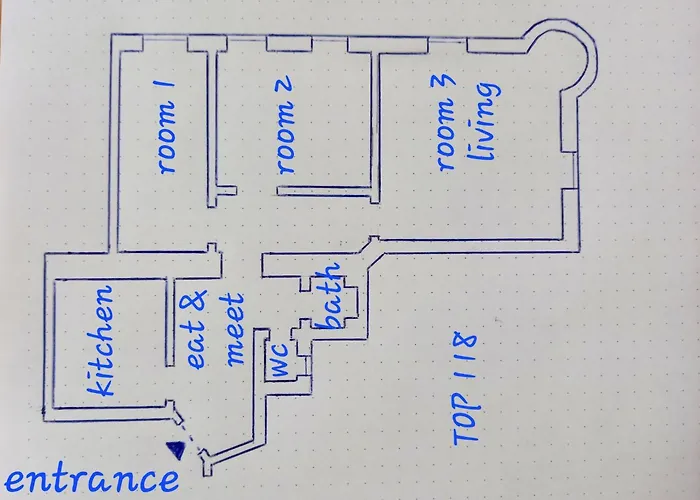 room 1
room 2
room 3
living
kitchen
eat &
meet
bath
WC
TOP 118
entrance